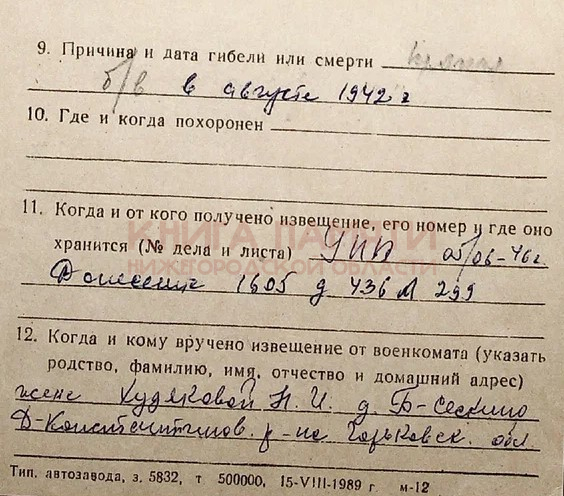 9. Причина и дата гибели или смерти
б/в в августе 1942 г
10. Где и когда похоронен
КНИГА ПАМЯТИ
НИЖЕГОРОДСКОЙ ОБЛАСТИ
11. Когда и от кого получено извещение, его номер и где оно
хранится (№ дела и листа) УПП 05/06-46г.
Донесение 1605 д 436 л 299
12. Когда и кому вручено извещение от военкомата (указать
родство, фамилию, имя, отчество и домашний адрес)
жене Худяковой Н. И. д. Б-Сескино
Д-Константинов. р-на Горьковск. обл.
Тип. автозавода, з. 5832, т 500000, 15-VIII-1989 г м-12